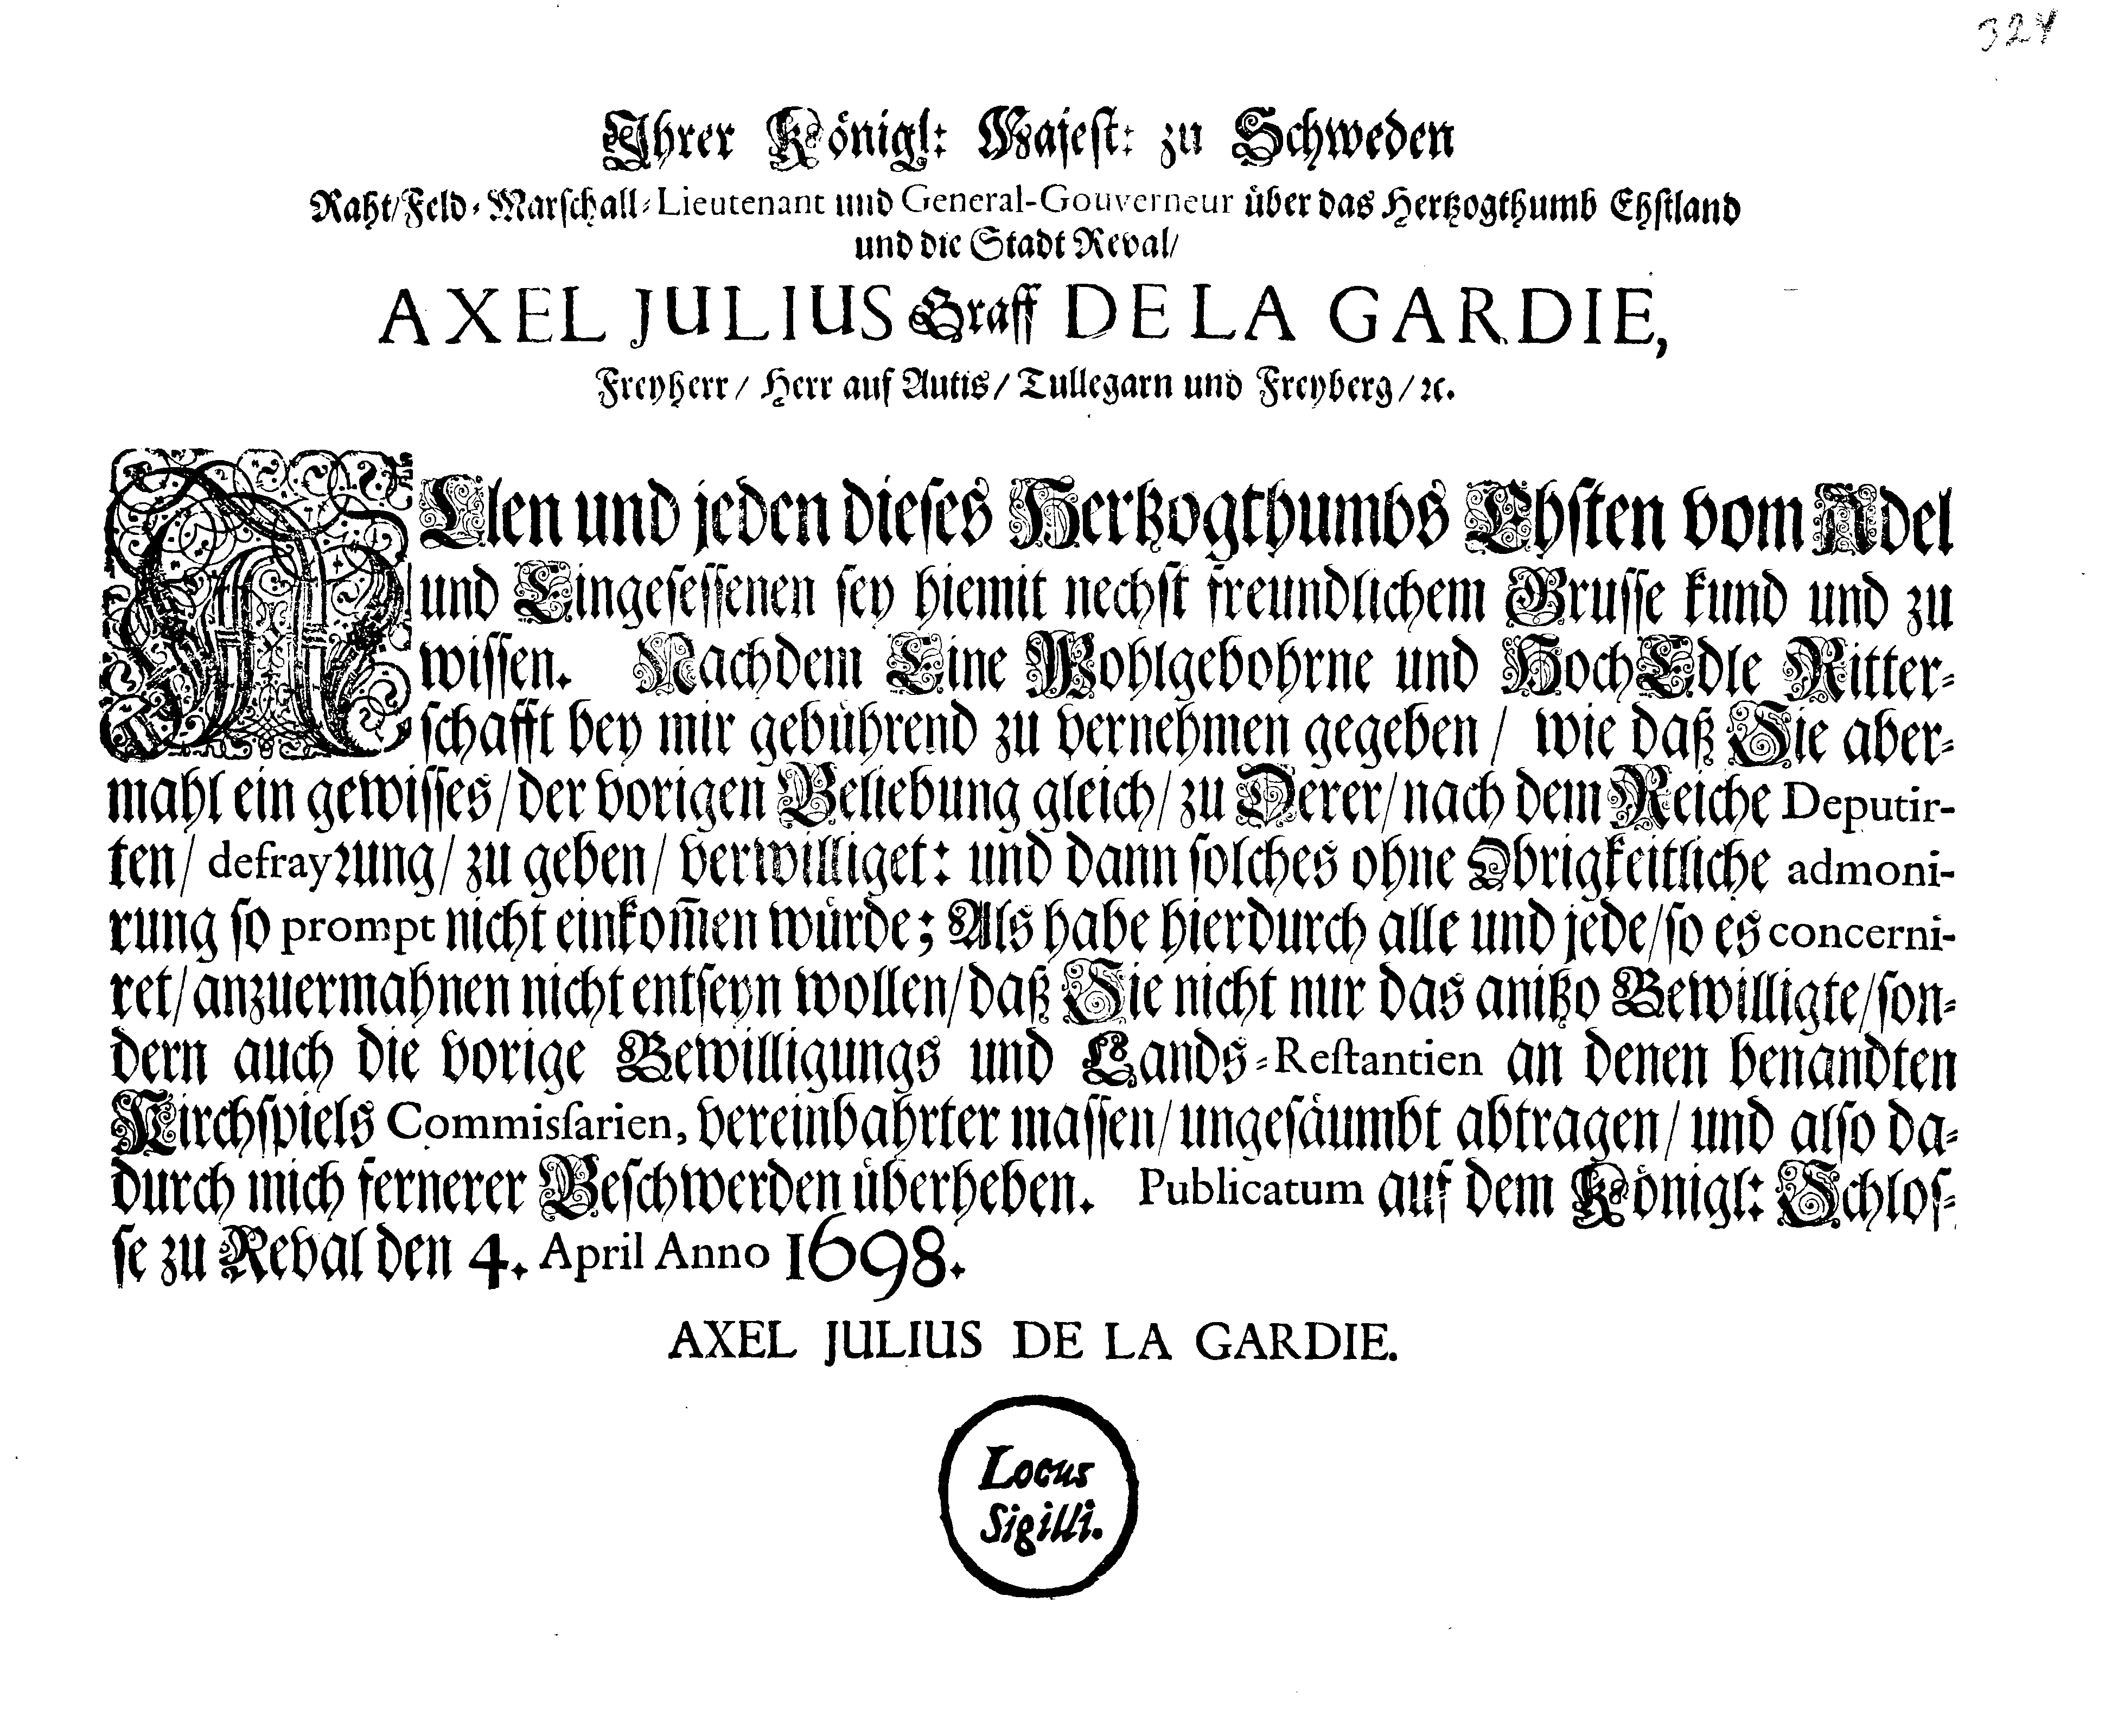 324
Ihrer Königl: Majest: zu Schweden
Raht/Feld-Marschall-Lieutenant und General-Gouverneur über das Hertzogthumb Ehstland
und die Stadt Reval/
AXEL JULIUS Graff DE LA GARDIE,
Freyherr/ Herr auf Autis/ Tullegarn und Freyberg/ ꝛc.
ALlen und jeden dieses Hertzogthumbs Ehsten vom Adel
und Eingesessenen sey hiemit nechst freundlichem Grusse kund und zu
wissen. Nachdem Eine Wohlgebohrne und HochEdle Ritter-
schafft bey mir gebührend zu vernehmen gegeben/ wie daß Sie aber-
mahl ein gewisses/der vorigen Beliebung gleich/zu Derer/nach dem Reiche Deputir-
ten/ defrayrung/ zu geben/ verwilliget: und dann solches ohne Obrigkeitliche admoni-
rung so prompt nicht einkom̃en würde; Als habe hierdurch alle und jede/so es concerni-
ret/anzuermahnen nicht entseyn wollen/daß Sie nicht nur das anitzo Bewilligte/son-
dern auch die vorige Bewilligungs und Lands-Restantien an denen benandten
Kirchspiels Commissarien, vereinbahrter massen/ungesäumbt abtragen/ und also da-
durch mich fernerer Beschwerden überheben. Publicatum auf dem Königl: Schlos-
se zu Reval den 4. April Anno 1698.
AXEL JULIUS DE LA GARDIE.
Locus
Sigilli.